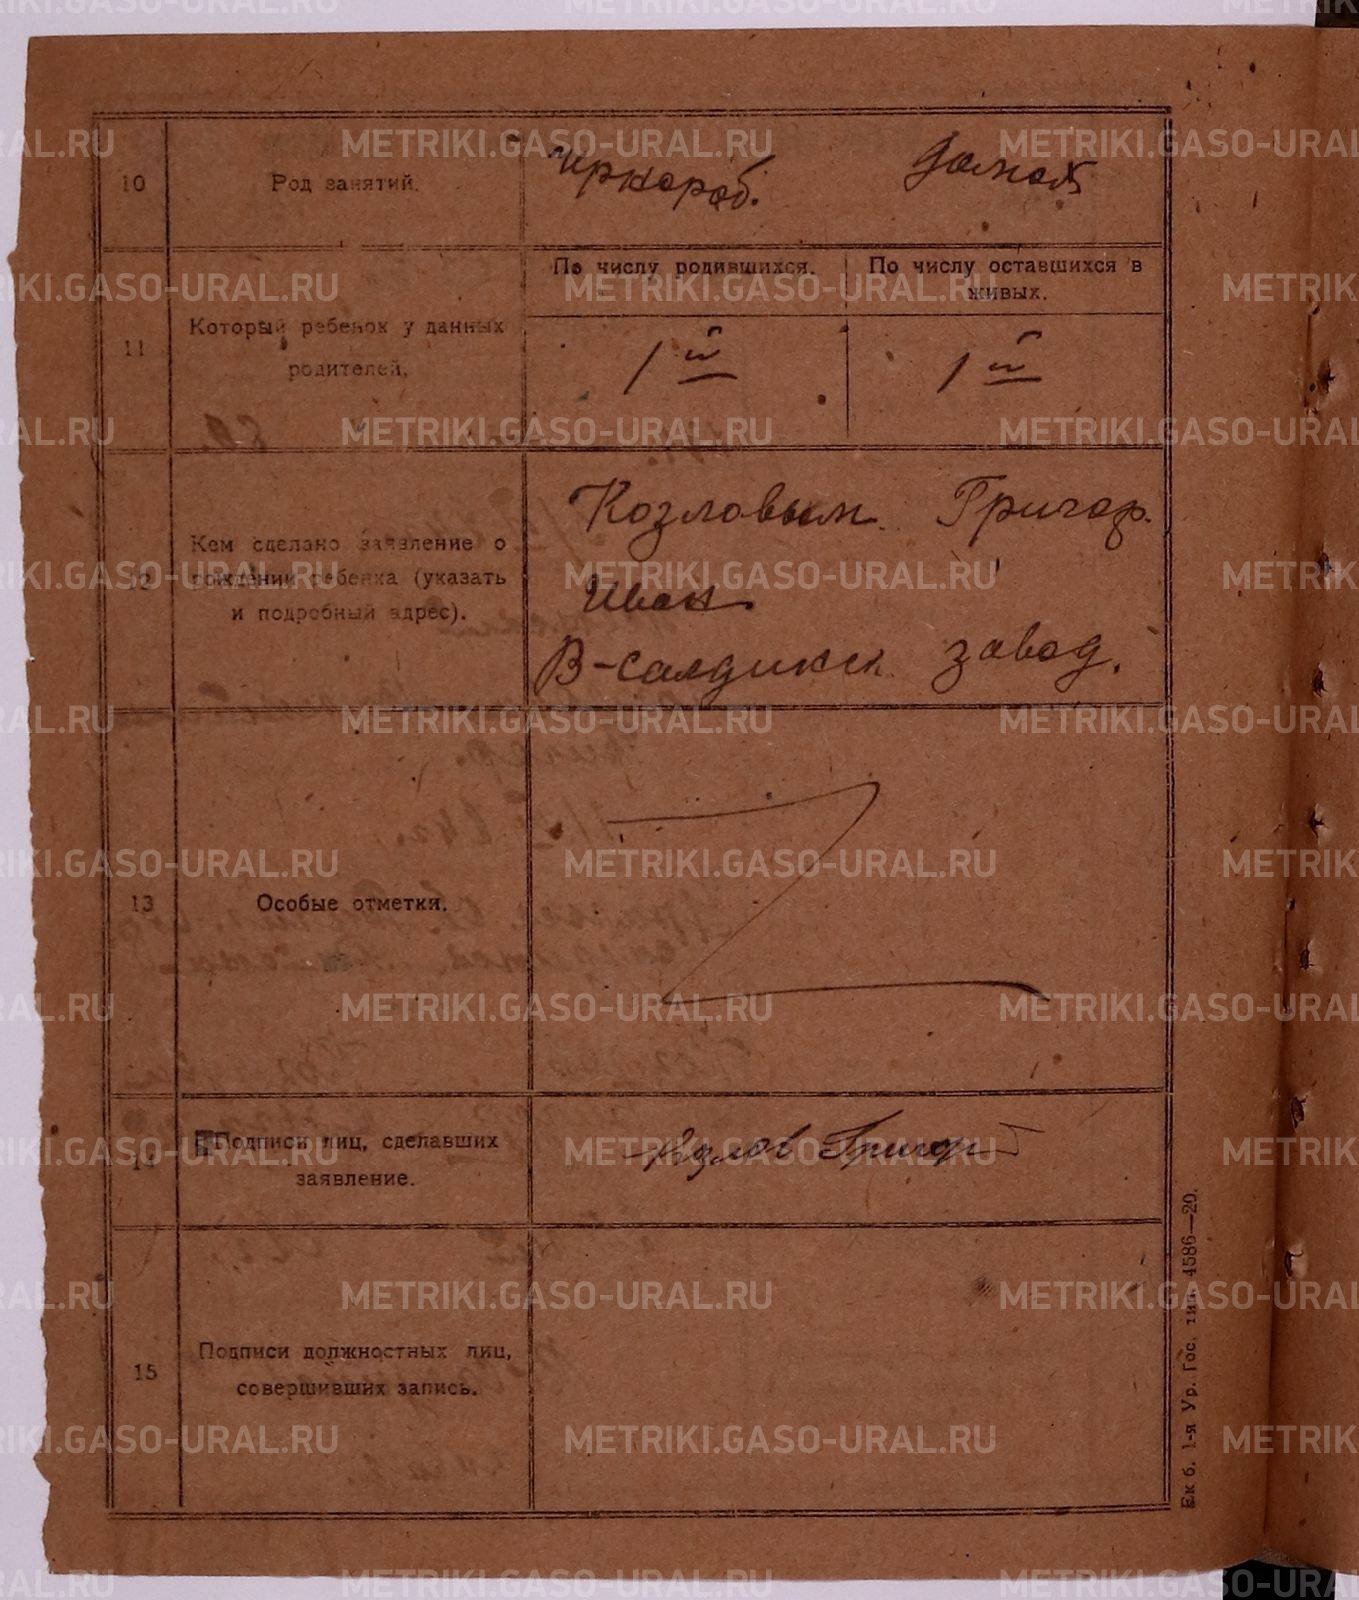 10
Род занятий.
чернораб.
домаш
11
Который ребенок у данных
родителей.
По числу родившихся.
По числу оставшихся в
живых.
1й
1й
12
Кем сделано заявление о
рождении ребенка (указать
и подробный адрес).
Козловым Григор.
Иван
В-салдинск завод.
13
Особые отметки.
14
Подписи лиц, сделавших
заявление.
Козлов Григор
15
Подписи должностных лиц,
совершивших запись.
Ек б. 1-я Ур. Гос. тип. 4586—20.
METRIKI.GASO-URAL.RU